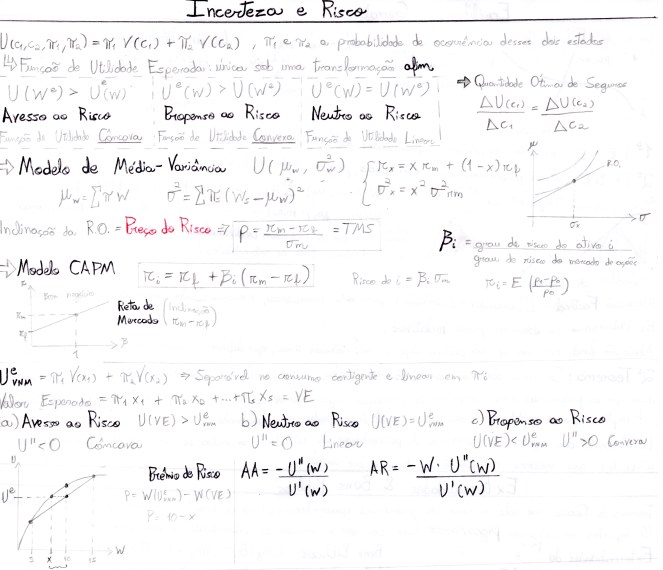 Incerteza e Risco
U(c₁,c₂,π₁,π₂) = π₁ V(c₁) + π₂ V(c₂) , π₁ e π₂ a probabilidade de ocorrência desses dois estados
↳ Função de Utilidade Esperada: única sob uma transformação afim
U(Wᵉ) > Uᵉ(W) Uᵉ(W) > U(Wᵉ) Uᵉ(W) = U(Wᵉ)
Avesso ao Risco Propenso ao Risco Neutro ao Risco
Função de Utilidade Côncava Função de Utilidade Convexa Função de Utilidade Linear
⇒ Quantidade Ótima de Seguros
ΔU(c₁)/Δc₁ = ΔU(c₂)/Δc₂
⇒ Modelo de Média-Variância U(μw, σ²w) { rx = x rm + (1-x) rf
μw = ∑πW σ² = ∑π(Ws - μw)² σ²x = x² σ²m
μ R.O. σx σ
Inclinação da R.O. = Preço do Risco ⇒ P = (rm - rf)/σm = TMS
βi = grau de risco do ativo i / grau de risco do mercado de ações
⇒ Modelo CAPM ri = rf + βi (rm - rf) Risco de i = βi σm ri = E (p₁-p₀ / p₀)
rm rf 1 β
Reta de Mercado (inclinação rm - rf)
Uᵉ VNM = π₁ V(x₁) + π₂ V(x₂) ⇒ Separável no consumo contigente e linear em πi
Valor Esperado = π₁ x₁ + π₂ x₂ + ... + πs xs = VE
a) Avesso ao Risco U(VE) > Uᵉvnm b) Neutro ao Risco U(VE) = Uᵉvnm c) Propenso ao Risco
U'' < 0 Côncava U'' = 0 Linear U(VE) < Uᵉvnm U'' > 0 Convexa
U Uᵉ 5 x 10 15 W
Prêmio de Risco AA = -U''(W) / U'(W) AR = -W · U''(W) / U'(W)
P = W(Uᵉvnm) - W(VE)
P = 10 - x